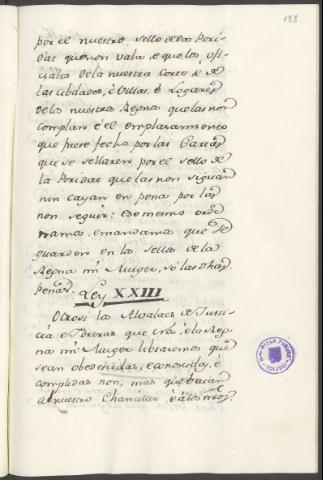 188
por el nuestro sello de la Pori-
dat que non vala, e que los ofi-
ciales de la nuestra Corte è de
las cibdades, è Villas è Logares
de los nuestros Regnos que las non
complan è el emplazamiento
que fuese fecho por las Cartas
que se sellaren por el sello de
la Poridat que las non siguan
nin cayan en pena por las
non seguir: eso mesmo orde
namos, e mandamos que se
guarden en los sellos de la
Regna mi Muger, só las dhas
penas. Ley XXIII
Otrosi los Alvalaes de Justi-
cia è que Nos, è la Rey-
na mi Muger libraremos que
sean obedecidas, e conoscidas, è
complidas non, mas que vayan
a nuestro Chanciller è a los
TOLEDO